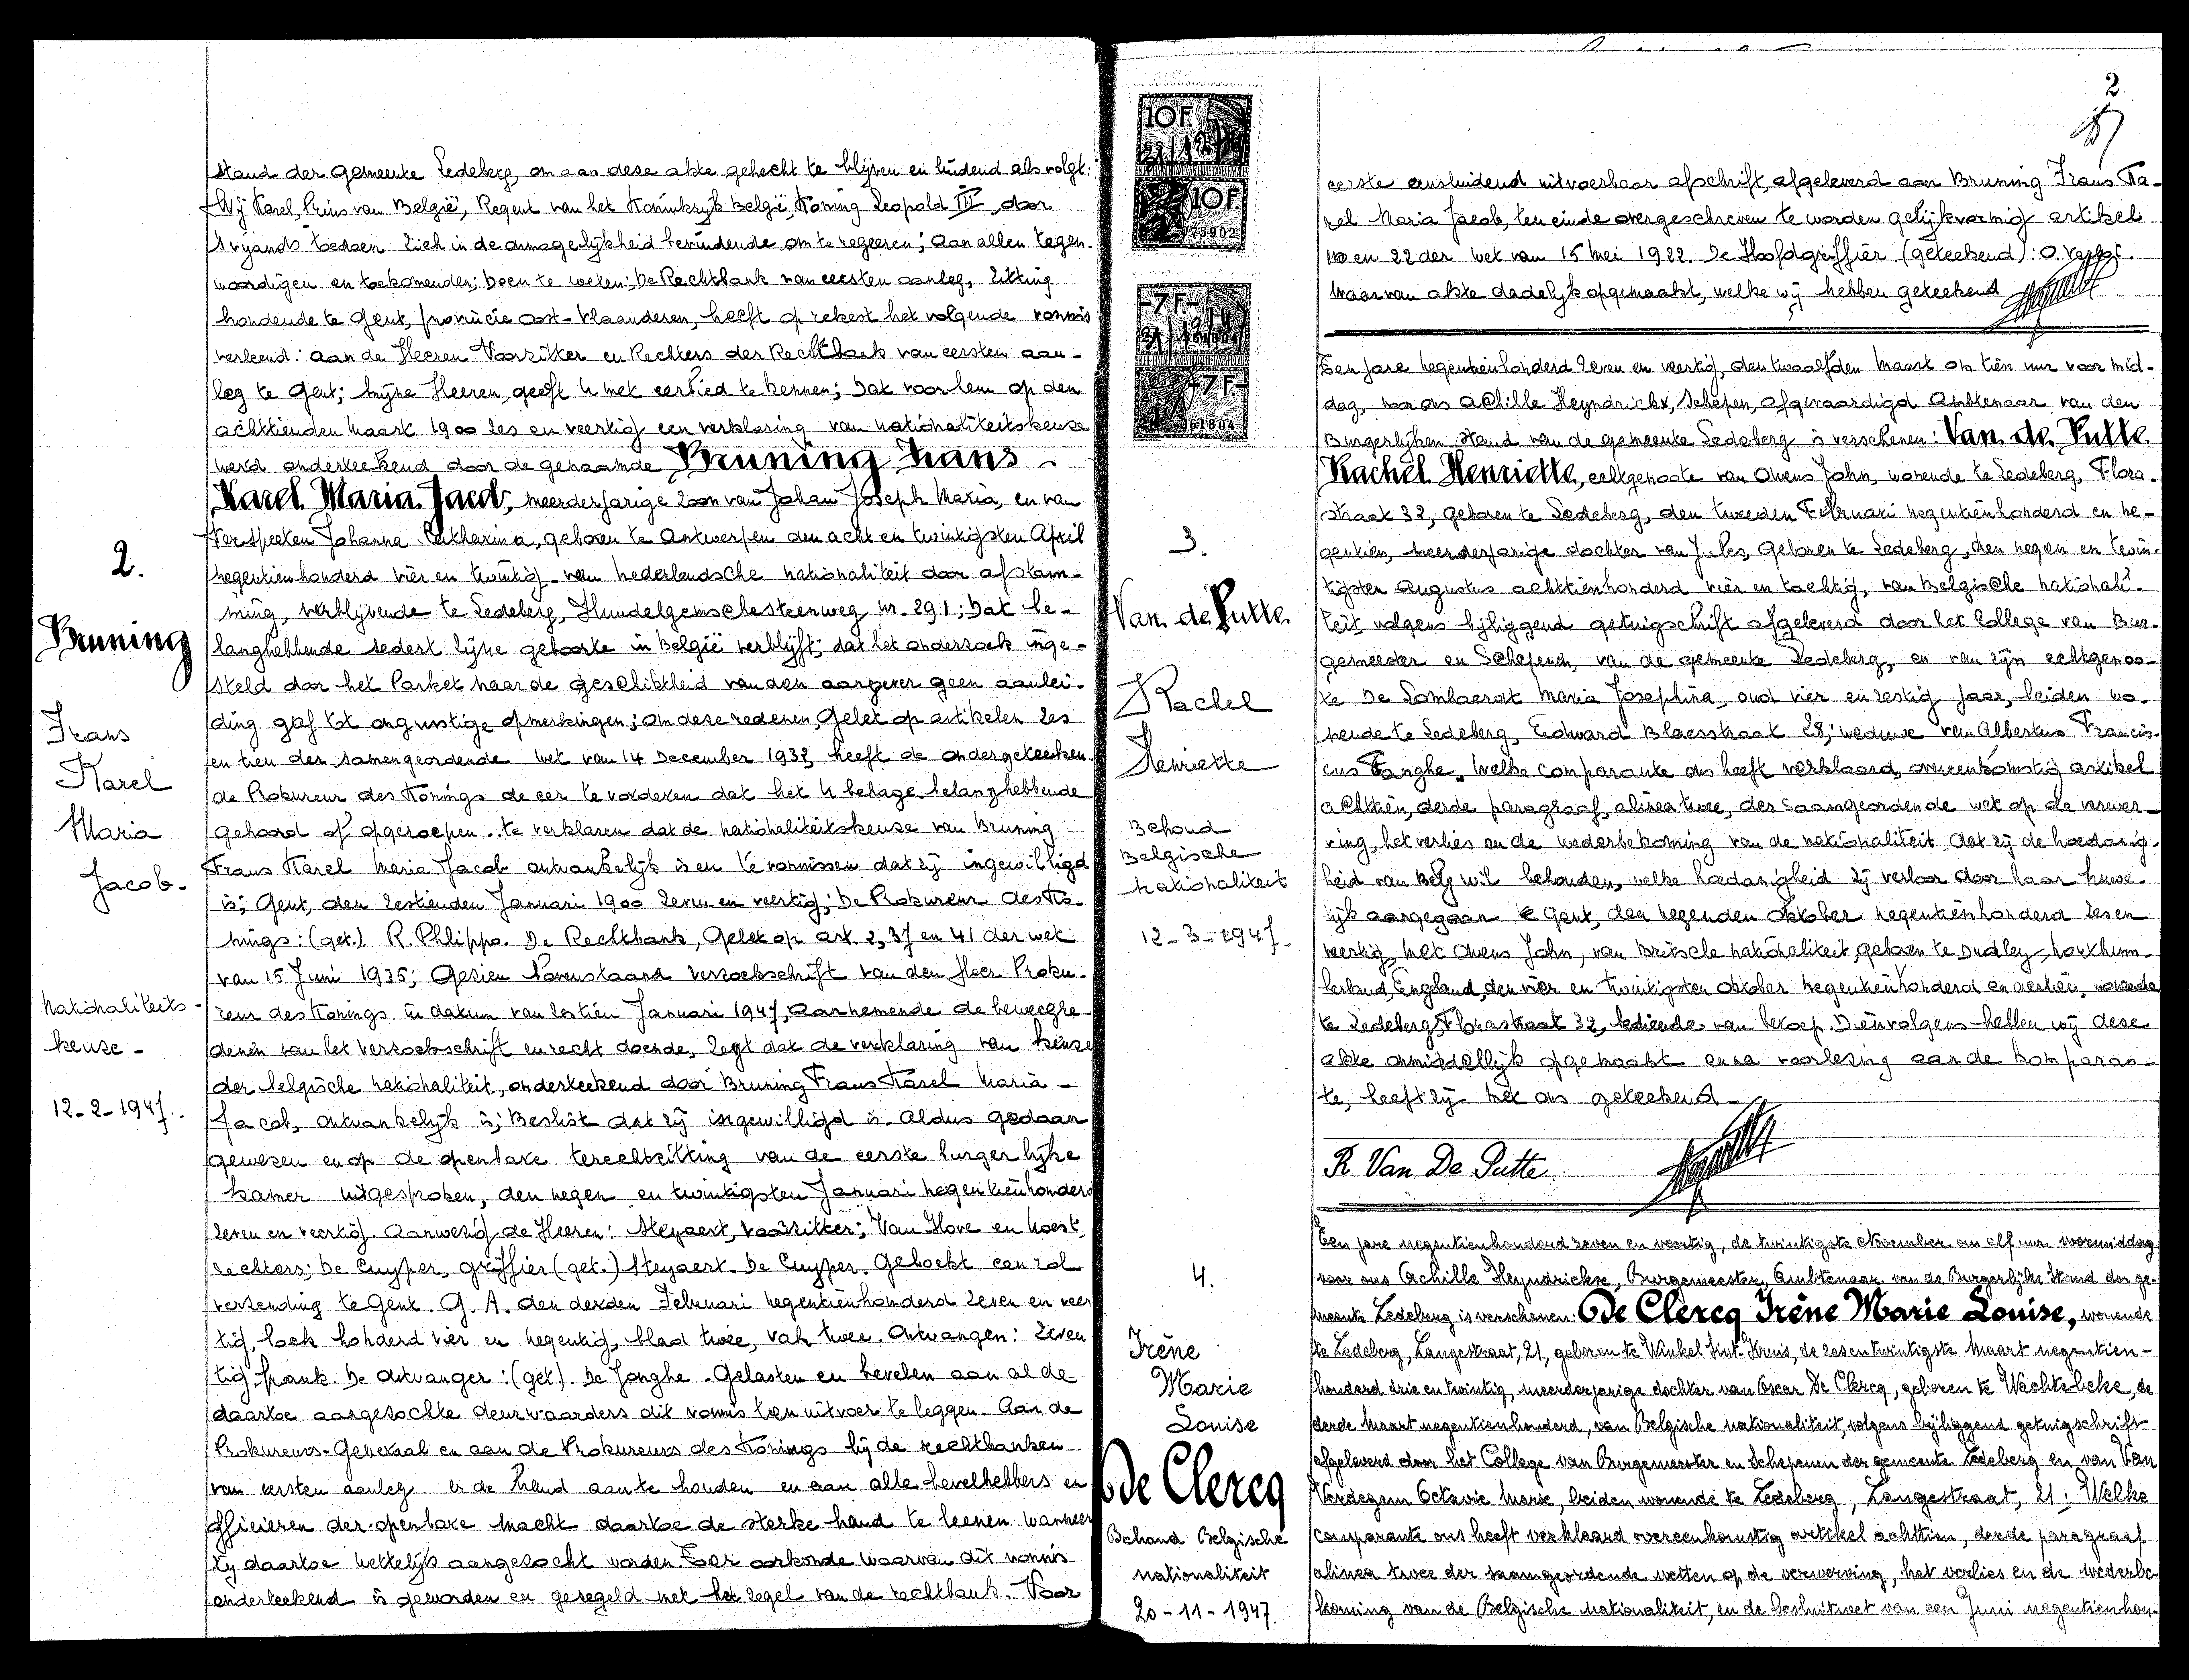 2.
Bruning
Frans
Karel
Maria
Jacob.
nationaliteits-
keuze -
12-2-1947.
stand der gemeente Ledeberg, om aan deze akte gehecht te blijven en luidend als volgt:
Wij Karel, Prins van België, Regent van het Koninkrijk België, Koning Leopold III, door
's vyands toedoen zich in de onmogelijkheid bevindende om te regeeren; aan allen tegen-
woordigen en toekomenden; Doen te weten: De Rechtbank van eersten aanleg, zitting
houdende te Gent, provincie oost-Vlaanderen, heeft op rekest het volgende vonnis
verleend: aan de Heeren Voorzitter en Rechters der Rechtbank van eersten aan-
leg te Gent; Mijne Heeren, geeft U met eerbied te kennen; Dat voor hem op den
achttienden Maart 1900 zes en veertig een verklaring van nationaliteitskeuze
werd onderteekend door de genaamde Bruning Frans
Karel Maria Jacob, meerderjarige zoon van Johan Joseph Maria, en van
Verspeeten Johanna Catharina, geboren te Antwerpen den acht en twintigsten April
negentienhonderd vier en twintig - van nederlandsche nationaliteit door afstam-
ming, verblijvende te Ledeberg, Hundelgemschesteenweg nr. 291; Dat be-
langhebbende sedert zijne geboorte in België verblijft; dat het onderzoek inge-
steld door het Parket naar de geschiktheid van den aangever geen aanlei-
ding gaf tot ongunstige opmerkingen; om deze redenen, Gelet op artikelen zes
en tien der samengeordende wet van 14 December 1932, heeft de ondergeteeken-
de Prokureur des Konings de eer te vorderen dat het U behage belanghebbende
gehoord of opgeroepen te verklaren dat de nationaliteitskeuze van Bruning
Frans Karel Maria Jacob ontvankelijk is en te vonnissen dat zij ingewilligd
is; Gent, den zestienden Januari 1900 zeven en veertig; De Prokureur des Ko-
nings: (get.) R. Phlippo. De Rechtbank, Gelet op art. 2, 37 en 41 der wet
van 15 Juni 1935; Gezien bovenstaand verzoekschrift van den Heer Proku-
reur des Konings in datum van zestien Januari 1947, aannemende de beweegre-
denen van het verzoekschrift en recht doende, zegt dat de verklaring van keuze
der belgische nationaliteit, onderteekend door Bruning Frans Karel Maria -
Jacob, ontvankelijk is; Beslist dat zij ingewilligd is. Aldus gedaan
gewezen en op de openbare terechtzitting van de eerste burgerlijke
kamer uitgesproken, den negen en twintigsten Januari negentienhonderd
zeven en veertig. Aanwezig de Heeren: Steyaert, voorzitter; Van Hove en
rechters; De Cuyper, griffier (get.) Steyaert. De Cuyper. Geboekt een rol
verzending te Gent. G. A. den derden Februari negentienhonderd zeven en veer
tig, boek honderd vier en negentig, blad twee, vak twee. Ontvangen: zeven
tig frank. De ontvanger: (get.). De Jonghe. Gelasten en bevelen aan al de
daartoe aangezochte deurwaarders dit vonnis ten uitvoer te leggen. Aan de
Prokureurs-Generaal en aan de Prokureurs des Konings bij de rechtbanken
van eersten aanleg er de hand aan te houden en aan alle bevelhebbers en
officieren der openbare macht daartoe de sterke hand te leenen wanneer
zij daartoe wettelijk aangezocht worden. Ter oorkonde waarvan dit vonnis
onderteekend is geworden en gezegeld met het zegel van de rechtbank. Voor
2
10F.
10F.
-7F-
-7F-
eerste eensluidend uitvoerbaar afschrift, afgeleverd aan Bruning Frans Ka-
rel Maria Jacob, ten einde overgeschreven te worden gelijkvormig artikel
en 22 der wet van 15 Mei 1922. De Hoofdgriffier (geteekend): O.
Waarvan akte dadelijk opgemaakt, welke wij hebben geteekend
3.
Van de Putte
Rachel
Henriette
Behoud
Belgische
nationaliteit
12-3-1947.
Ten jare negentienhonderd zeven en veertig, den twaalfden Maart om tien uur voor mid-
dag, voor ons Achille Heyndrickx, Schepen, afgevaardigd Ambtenaar van den
Burgerlijken Stand van de gemeente Ledeberg is verschenen: Van de Putte
Rachel Henriette, echtgenoote van Owens John, wonende te Ledeberg, Flora-
straat 32, geboren te Ledeberg, den tweeden Februari negentienhonderd en ne-
gentien, meerderjarige dochter van Jules, geboren te Ledeberg, den negen en twin-
tigsten Augustus achttienhonderd vier en tachtig, van Belgische nationali-
teit volgens bijliggend getuigschrift afgeleverd door het College van Bur-
gemeester en Schepenen, van de gemeente Ledeberg, en van zijn echtgenoo-
te De Sombaerdt Maria Josephina, oud vier en zestig jaar, beiden wo-
nende te Ledeberg, Edward Blaesstraat 28, weduwe van Albertus Francis-
cus Tanghe. Welke comparante ons heeft verklaard, overeenkomstig artikel
achttien, derde paragraaf, alinea twee, der saamgeordende wet op de verwer-
ving, het verlies en de wederbekoming van de nationaliteit dat zij de hoedanig-
heid van Belg wil behouden, welke hoedanigheid zij verloor door haar huwe-
lijk aangegaan te Gent, den negenden Oktober negentienhonderd zes en
veertig, met Owens John, van Britsche nationaliteit, geboren te Dudley, Northum-
berland, England, den vier en twintigsten oktober negentienhonderd en veertien, wonende
te Ledeberg, Florastraat 32, bediende van beroep. Dienvolgens hebben wij deze
akte onmiddellijk opgemaakt en na voorlezing aan de komparan-
te, heeft zij met ons geteekend -
R Van De Putte
4.
Irène
Marie
Louise
de Clercq
Behoud Belgische
nationaliteit
20-11-1947
Ten jare negentienhonderd zeven en veertig, de twintigste November om elf uur voormiddag
voor ons Achille Heyndrickx, Burgemeester, Ambtenaar van de Burgerlijke Stand der ge-
meente Ledeberg is verschenen: De Clercq Irène Marie Louise, wonende
te Ledeberg, Langestraat, 21, geboren te Winkel Sint-Kruis, de zesentwintigste Maart negentien-
honderd drie en twintig, meerderjarige dochter van Oscar De Clercq, geboren te Wachtebeke, de
derde Maart negentienhonderd, van Belgische nationaliteit, volgens bijliggend getuigschrift
afgeleverd door het College van Burgemeester en Schepenen der gemeente Ledeberg en van Van
Verdegem Octavie Marie, beiden wonende te Ledeberg, Langestraat, 21. Welke
comparante ons heeft verklaard overeenkomstig artikel achttien, derde paragraaf
alinea twee der saamgeordende wetten op de verwerving, het verlies en de wederbe-
koming van de Belgische nationaliteit, en de besluitwet van een Juni negentienhon-